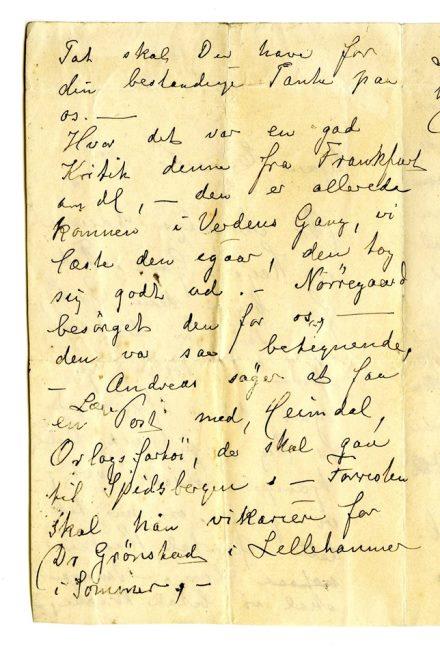 Tak skal Du have for
din bestandige Tanke paa
os. —
Hvor det var en god
Kritik denne fra Frankfurt
am M, — den er allerede
kommen i Verdens Gang, vi
læste den igaar, den tog
sig godt ud. — Nörregaard
besörget den for os, —
den var saa betegnende,
— Andreas söger at faa
en Læge Post med, Heimdal,
Orlogsfartöi, der skal gaa
til Spidsbergen, —
skal han vikariere for
(Dr Grönstad i Lillehammer
i Sommer, —